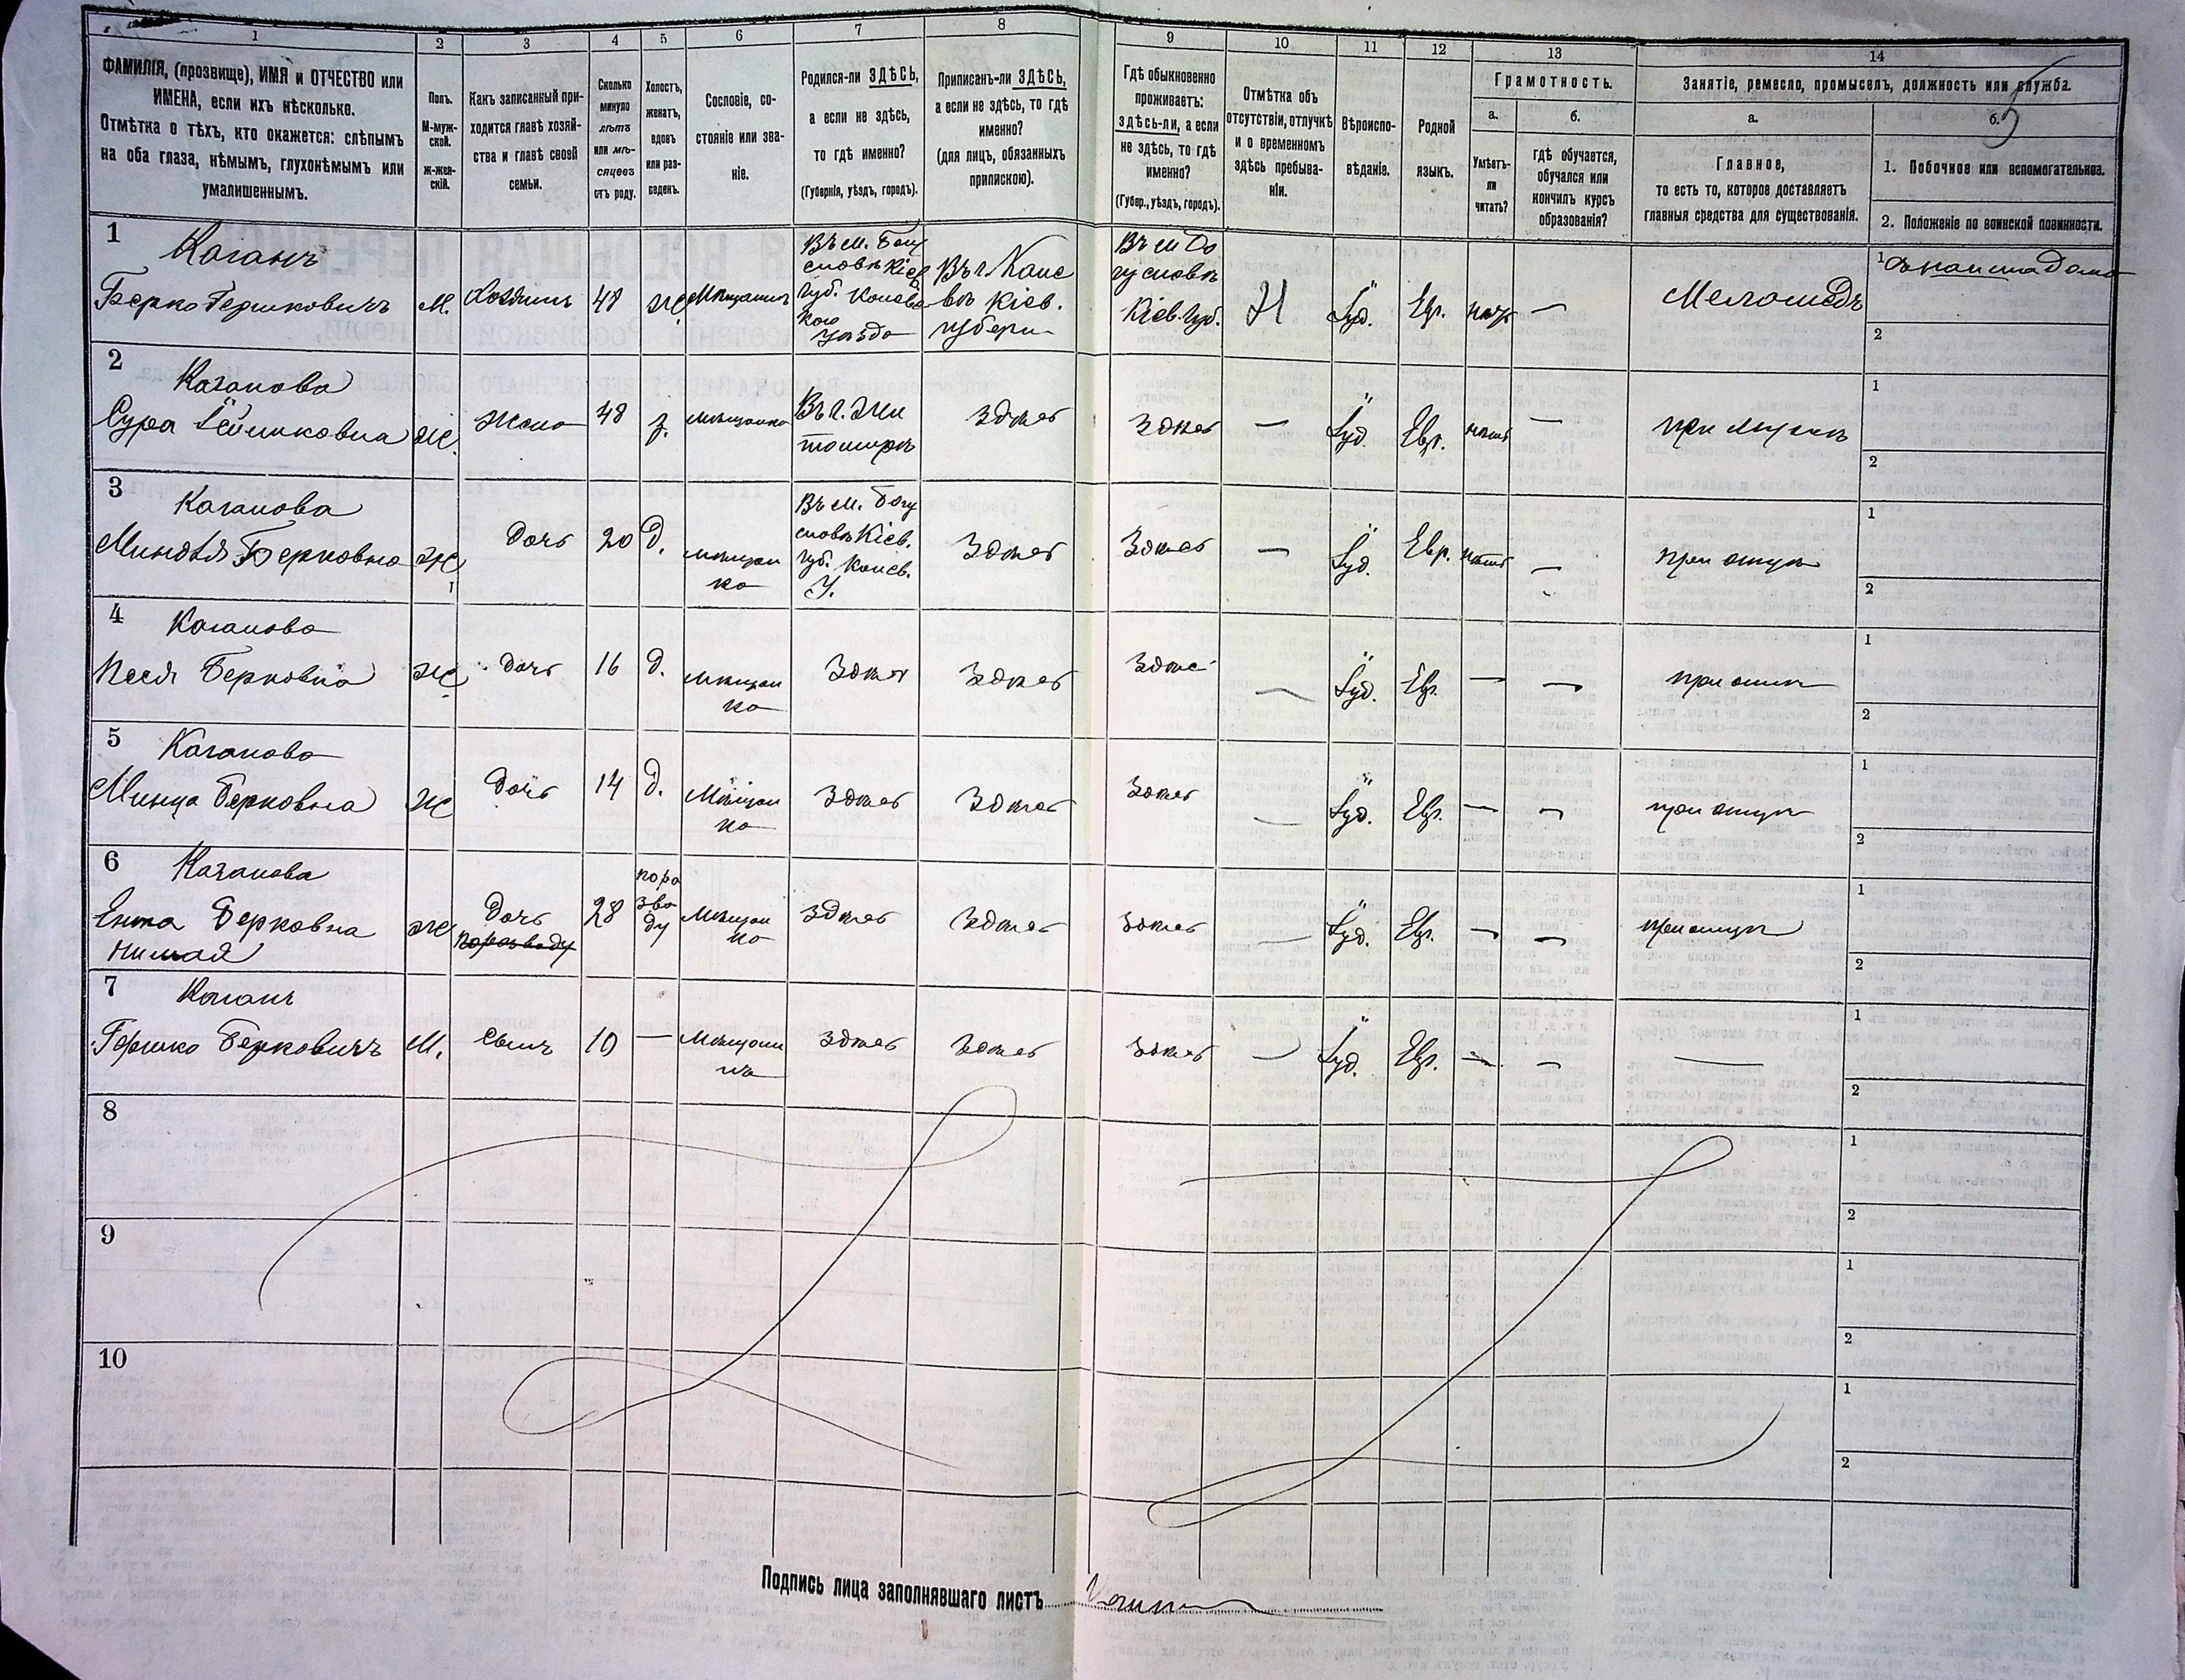 1 2 3 4 5 6 7 8 9 10 11 12 13 14
ФАМИЛІЯ, (прозвище), ИМЯ и ОТЧЕСТВО или
ИМЕНА, если ихъ нѣсколько.
Отмѣтка о тѣхъ, кто окажется: слѣпымъ
на оба глаза, нѣмымъ, глухонѣмымъ или
умалишеннымъ.
Полъ.
М-муж-
ской.
Ж-жен-
скій.
Какъ записанный при-
ходится главѣ хозяй-
ства и главѣ своей
семьи.
Сколько
минуло
лѣтъ
или мѣ-
сяцевъ
отъ роду.
Холостъ,
женатъ,
вдовъ
или раз-
веденъ.
Сословіе, со-
стояніе или зва-
ніе.
Родился-ли ЗДѢСЬ,
а если не здѣсь,
то гдѣ именно?
(Губернія, уѣздъ, городъ).
Приписанъ-ли ЗДѢСЬ,
а если не здѣсь, то гдѣ
именно?
(для лицъ, обязанныхъ
припискою).
Гдѣ обыкновенно
проживаетъ:
здѣсь-ли, а если
не здѣсь, то гдѣ
именно?
(Губер., уѣздъ, городъ).
Отмѣтка объ
отсутствіи, отлучкѣ
и о временномъ
здѣсь пребыва-
ніи.
Вѣроиспо-
вѣданіе.
Родной
языкъ.
Грамотность.
а.
Умѣетъ-
ли
читать?
б.
гдѣ обучается,
обучался или
кончилъ курсъ
образованія?
Занятіе, ремесло, промыселъ, должность или служба.
а.
Главное,
то есть то, которое доставляетъ
главныя средства для существованія.
б.
5
1. Побочное или вспомогательное.
2. Положеніе по воинской повинности.
1
Каганъ
Берко Гершковичъ
М.
Хозяинъ
48
Ж
Мѣщанинъ
Въ м. Богу
славѣ Кіев
губ. Каневс
каго
уѣзда
Въ г. Кане
вѣ Кіев.
губерн
Въ м Бо
гуславѣ
Кіев. Губ.
Іуд.
Евр.
—
Меламедъ
1
2
2
Каганова
Сура
Ж.
Жена
48
З.
Мѣщанка
Въ г. Жи
томирѣ
Здѣсь
Здѣсь
—
Іуд.
Евр.
нѣтъ
—
при мужѣ
1
2
3
Каганова
Миндля Берковна
Ж
Дочь
20
Д.
Мѣщан
ка
Въ м. Богу
славѣ Кіев.
губ. Канев.
У.
Здѣсь
Здѣсь
—
Іуд.
Евр.
нѣтъ
—
при отцѣ
1
2
4
Каганова
Песя Берковна
Ж
Дочь
16
Д.
Мѣщан
ка
Здѣсь
Здѣсь
Здѣсь
—
Іуд.
Евр.
—
—
при отцѣ
1
2
5
Каганова
Минца Берковна
Ж
Дочь
14
Д.
Мѣщан
ка
Здѣсь
Здѣсь
Здѣсь
—
Іуд.
Евр.
—
—
при отцѣ
1
2
6
Каганова
Ента Берковна
Ж
Дочь
поразводу
28
пора
зво
ду
Мѣщан
ка
Здѣсь
Здѣсь
Здѣсь
—
Іуд.
Евр.
—
—
при отцѣ
1
2
7
Каганъ
Гершко Берковичъ
М.
Сынъ
10
—
Мѣщани
нъ
Здѣсь
Здѣсь
Здѣсь
—
Іуд.
Евр.
—
—
—
1
2
8
1
2
9
1
2
10
1
2
Подпись лица заполнявшаго листъ